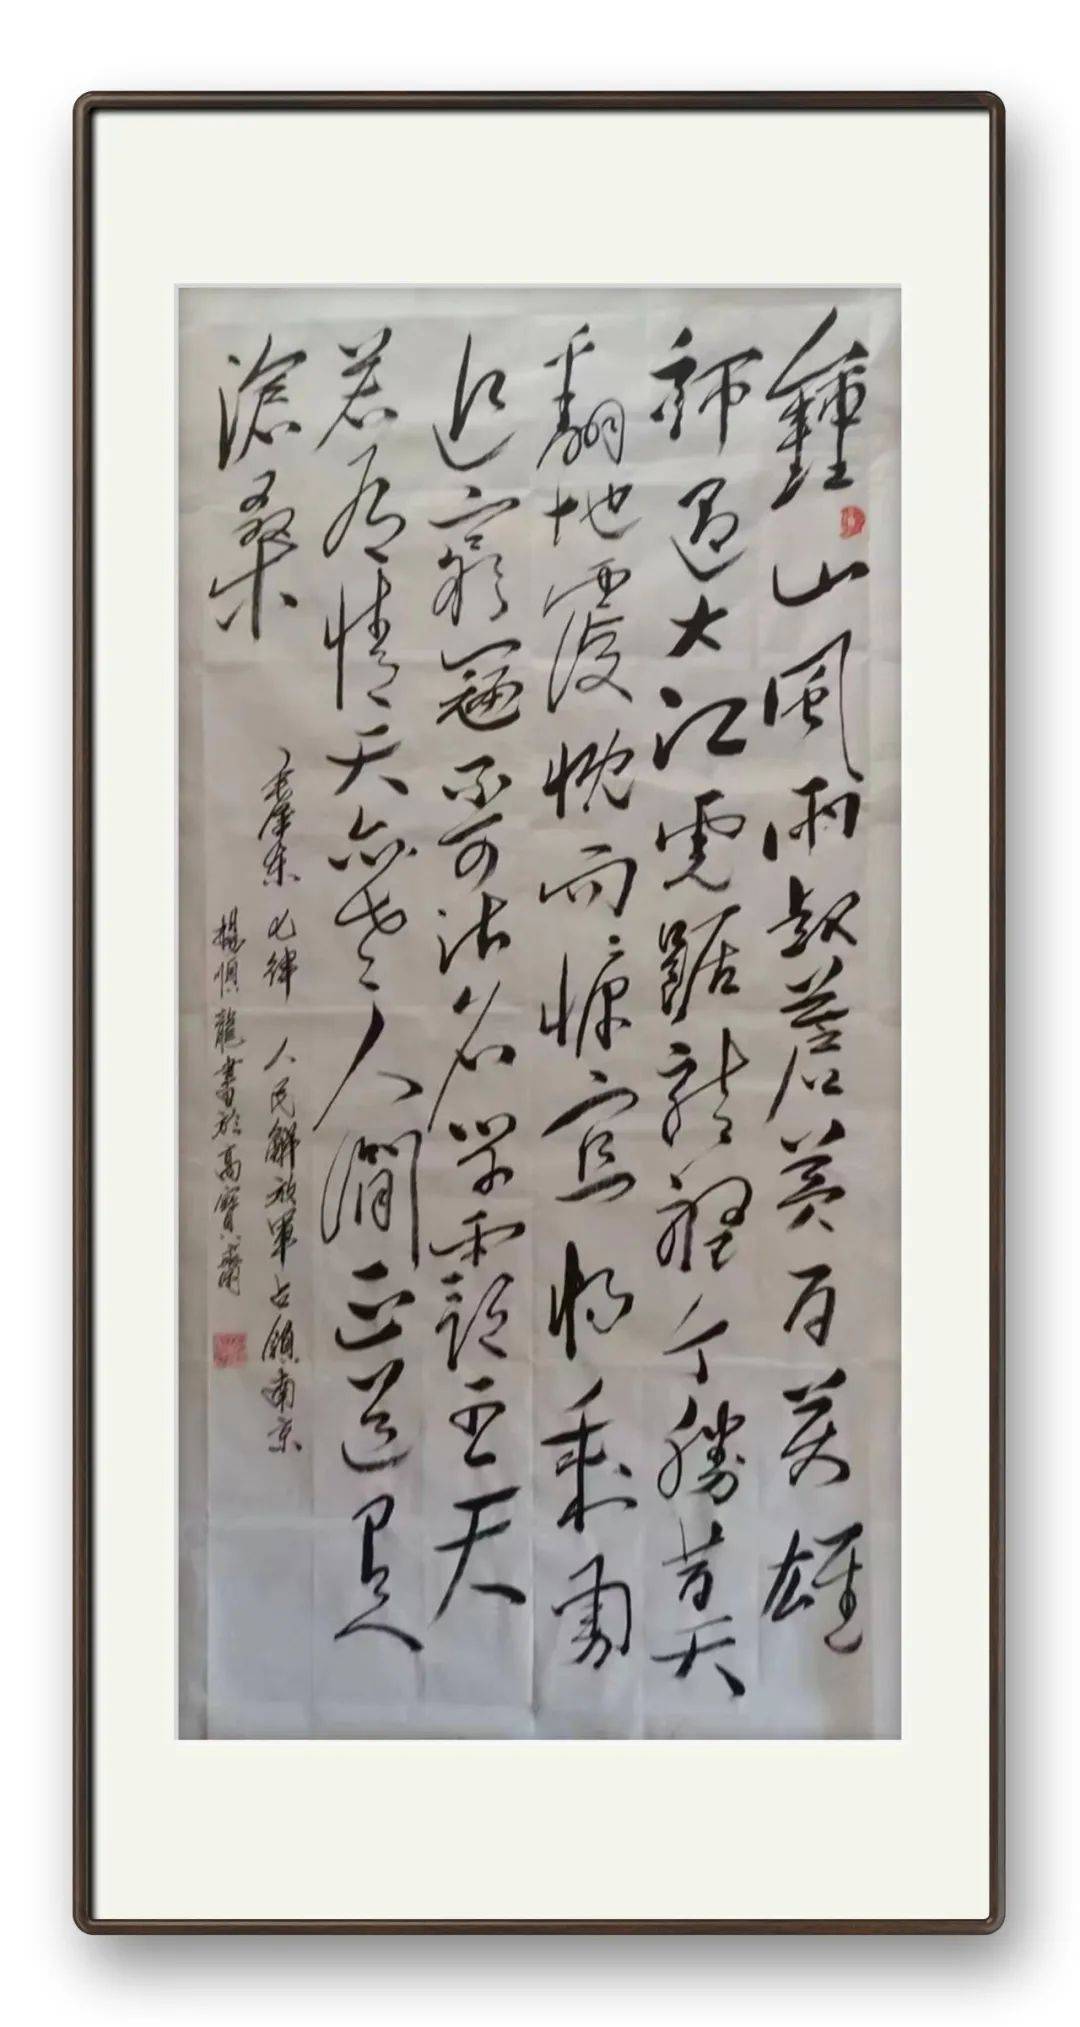 鍾山風雨起蒼黃百萬雄
師過大江虎踞龍蟠今勝昔天
翻地覆慨而慷宜將剩勇
追窮寇不可沽名學霸王天
若有情天亦老人間正道是
滄桑
毛澤東七律 人民解放軍占領南京
龍書於高寶齋